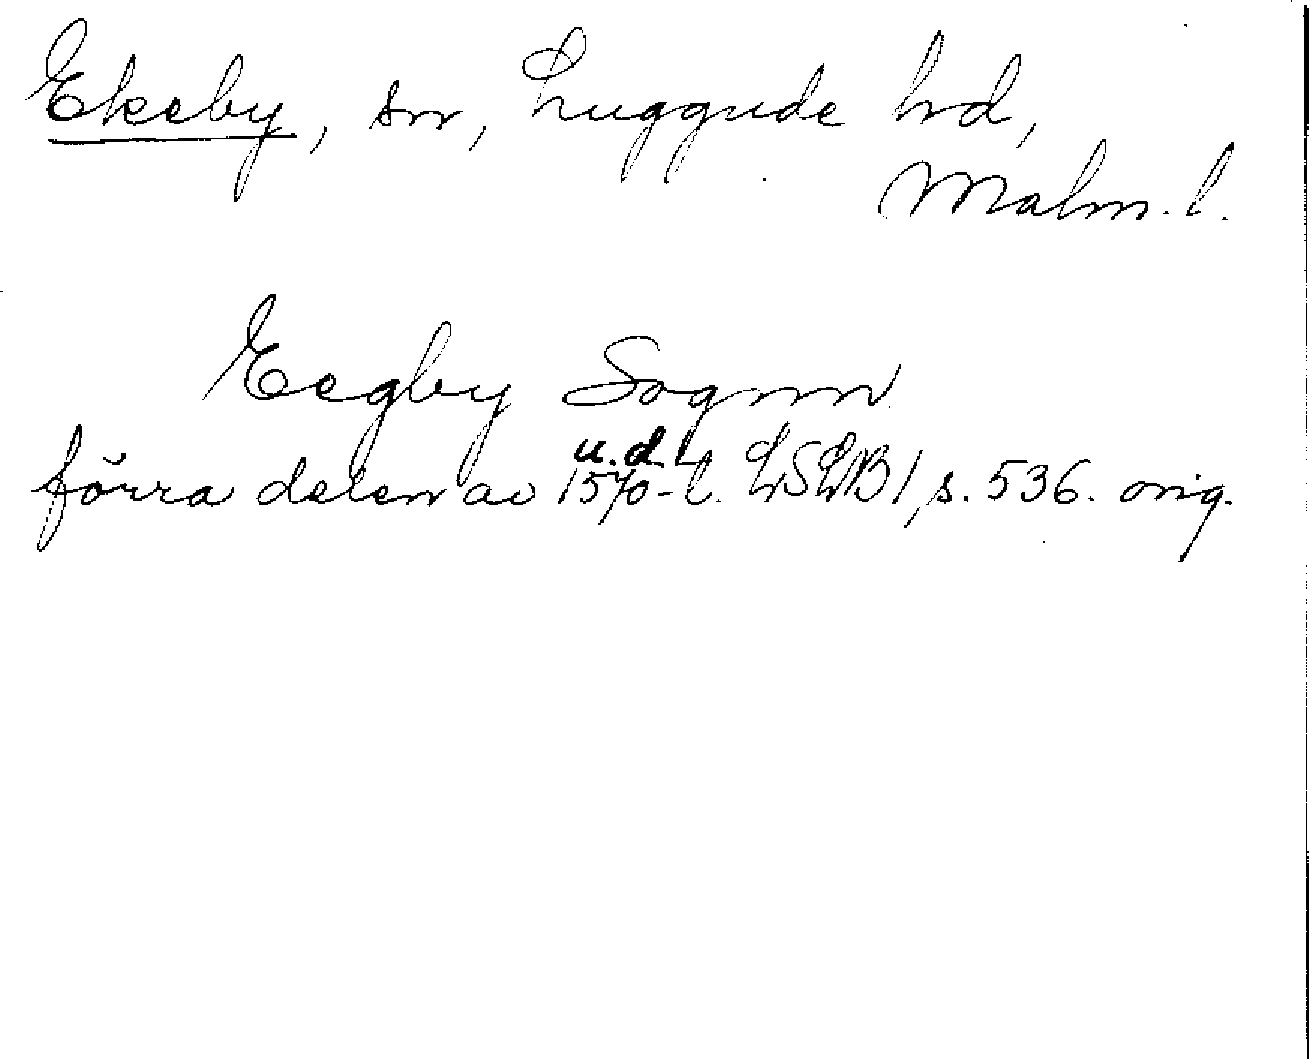 Ekeby, sn, Luggude hd,
Malm. l.
Eegby Sognn
u.d.
förra delen av 1570-t. LSLB 1, s. 536. orig.